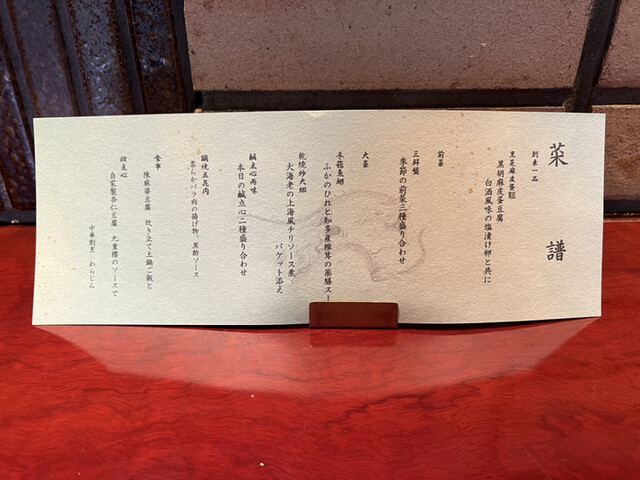 菜譜
到来一品
黒芝麻皮蛋
黒胡麻皮蛋豆腐
白酒風味の塩漬け卵と共に
前菜
三鮮盤
季節の前菜三種盛り合わせ
大菜
冬菇魚翅
ふかのひれと知多産椎茸の薬膳スー
乾焼炒大蝦
大海老の上海風チリソース煮
バゲット添え
鹹点心両味
本日の鹹点心二種盛り合わせ
鍋焼五花肉
柔らかバラ肉の揚げ物、黒酢ソース
食事
陳麻婆豆腐 炊き立て土鍋ご飯と
甜点心
自家製杏仁豆腐 九重櫻のソースで
中華割烹 わらじん